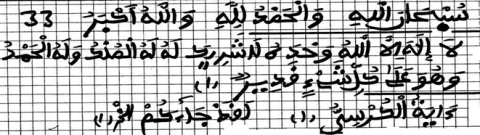 سُبْحَانَ اللهِ وَالْحَمْدُ لِلَّهِ وَاللهُ أَكْبَرُ 33
لَا إِلَهَ إِلَّا اللهُ وَحْدَهُ لَا شَرِيكَ لَهُ لَهُ الْمُلْكُ وَلَهُ الْحَمْدُ
وَهُوَ عَلَى كُلِّ شَيْءٍ قَدِيرٌ (1)
ءَايَةُ الْكُرْسِيُّ (1) لَقَدْ جَاءَكُمْ (1)